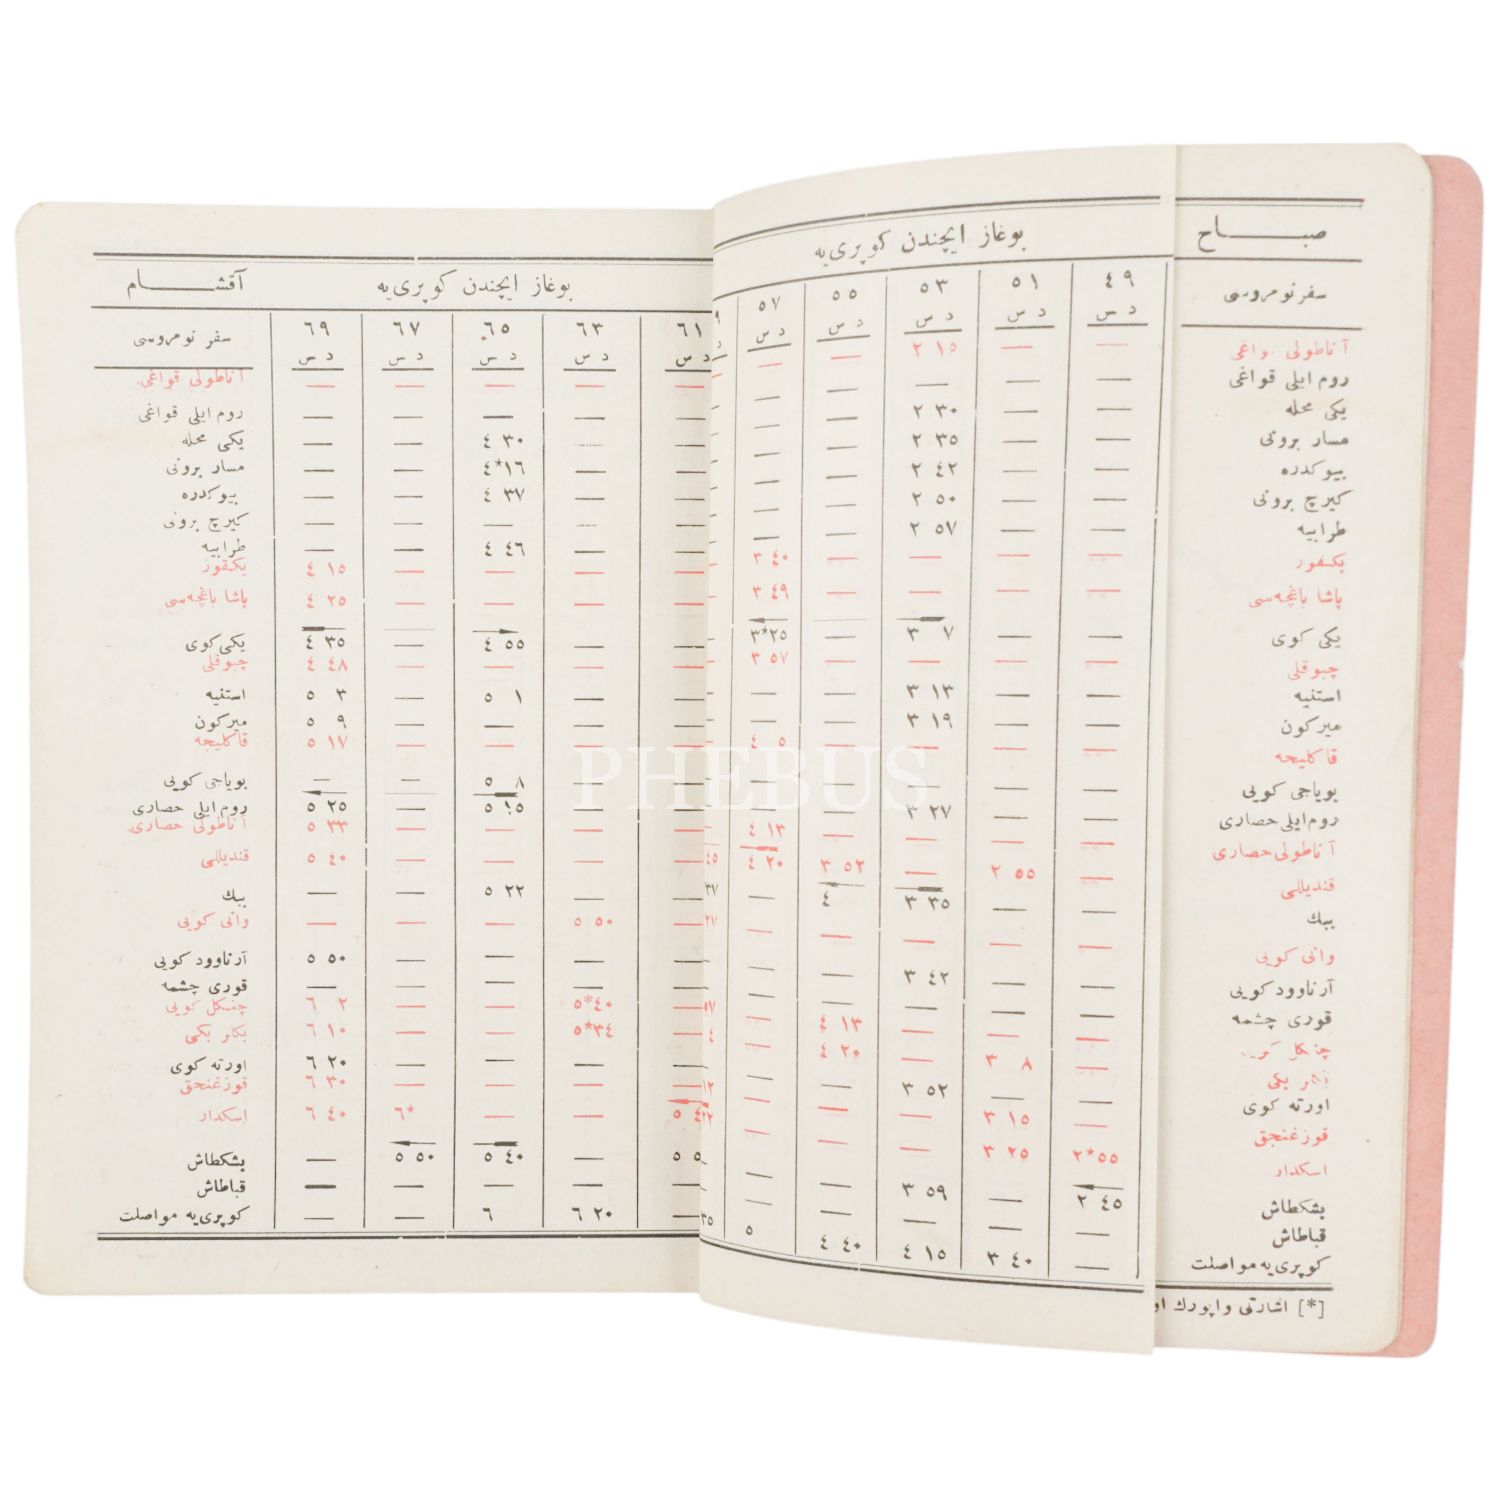 صبـــاح
بوغاز ایچندن کوپری‌یه
سفر نومروسی ٤٩ ٥١ ٥٣ ٥٥ ٥٧
د س د س د س د س د س
آناطولی — — ٢ ١٥ — —
روم ایلی قواغی — — — — —
یکی محله — — ٢ ٣٠ — —
مسار برونی — — ٢ ٣٥ — —
بیوکدره — — ٢ ٤٢ — —
کیرچ برونی — — ٢ ٥٠ — —
طرابیه — — ٢ ٥٧ — —
بکقوز — — — — ٣ ٤٠
پاشا باغچه‌سی — — — — ٣ ٤٩
یکی کوی — — ٣ ٧ — ٣*٢٥
چبوقلی — — — — ٣ ٥٧
استنیه — — ٣ ١٣ — —
میرکون — — ٣ ١٩ — —
قاکلیجه — — — — ٤ ٥
بویاجی کویی — —
روم‌ایلی حصاری — — ٣ ٢٧ — —
آناطولی حصاری — — — — ٤ ١٣
قندیللی — ٢ ٥٥ — ٣ ٥٢ ٤ ٢٠
ببك — — ٣ ٣٥ ٤ —
وانی کویی — — — — —
آرناوود کویی — — ٣ ٤٢ — —
قوری چشمه — — — — —
چنکل — — — ٤ ١٣ —
بکی — ٣ ٨ — ٤ ٢٠ —
اورته کوی — — ٣ ٥٢ — —
قوزغنجق — ٣ ١٥ — — —
اسکدار ٢*٥٥ ٣ ٢٥ — — —
بشکطاش ٢ ٤٥ — ٣ ٥٩ — —
قباطاش — — — — —
کوپری‌یه مواصلت — ٣ ٤٠ ٤ ١٥ ٤ ٤٠ ٥
[*] اشارتی واپورك او
PHEBUS
بوغاز ایچندن کوپری‌یه
آقشـــام
٦١ ٦٣ ٦٥ ٦٧ ٦٩ سفر نومروسی
د س د س د س د س د س
— — — — — آناطولی قواغی
— — — — — روم ایلی قواغی
— — ٤ ٣٠ — — یکی محله
— — ٤*١٦ — — مسار برونی
— — ٤ ٣٧ — — بیوکدره
— — — — — کیرچ برونی
— — ٤ ٤٦ — — طرابیه
— — — — ٤ ١٥ بکقوز
— — — — ٤ ٢٥ پاشا باغچه‌سی
— — ٤ ٥٥ — ٤ ٣٥ یکی کوی
— — — — ٤ ٤٨ چبوقلی
— — ٥ ١ — ٥ ٣ استنیه
— — — — ٥ ٩ میرکون
— — — — ٥ ١٧ قاکلیجه
— — ٥ ٨ — — بویاجی کویی
— — ٥ ١٥ — ٥ ٢٥ روم ایلی حصاری
— — — — ٥ ٣٣ آناطولی حصاری
— — — — ٥ ٤٠ قندیللی
— — ٥ ٢٢ — — ببك
— ٥ ٥٠ — — — وانی کویی
— — — — ٥ ٥٠ آرناوود کویی
— — — — — قوری چشمه
— ٥*٤٠ — — ٦ ٢ چنکل کویی
— ٥*٣٤ — — ٦ ١٠ بکلر بکی
— — — — ٦ ٢٠ اورته کوی
— — — — ٦ ٣٠ قوزغنجق
— — ٦* ٦ ٤٠ اسکدار
— ٥ ٤٠ ٥ ٥٠ — بشکطاش
— — — — — قباطاش
— ٦ ٢٠ ٦ — — کوپری‌یه مواصلت